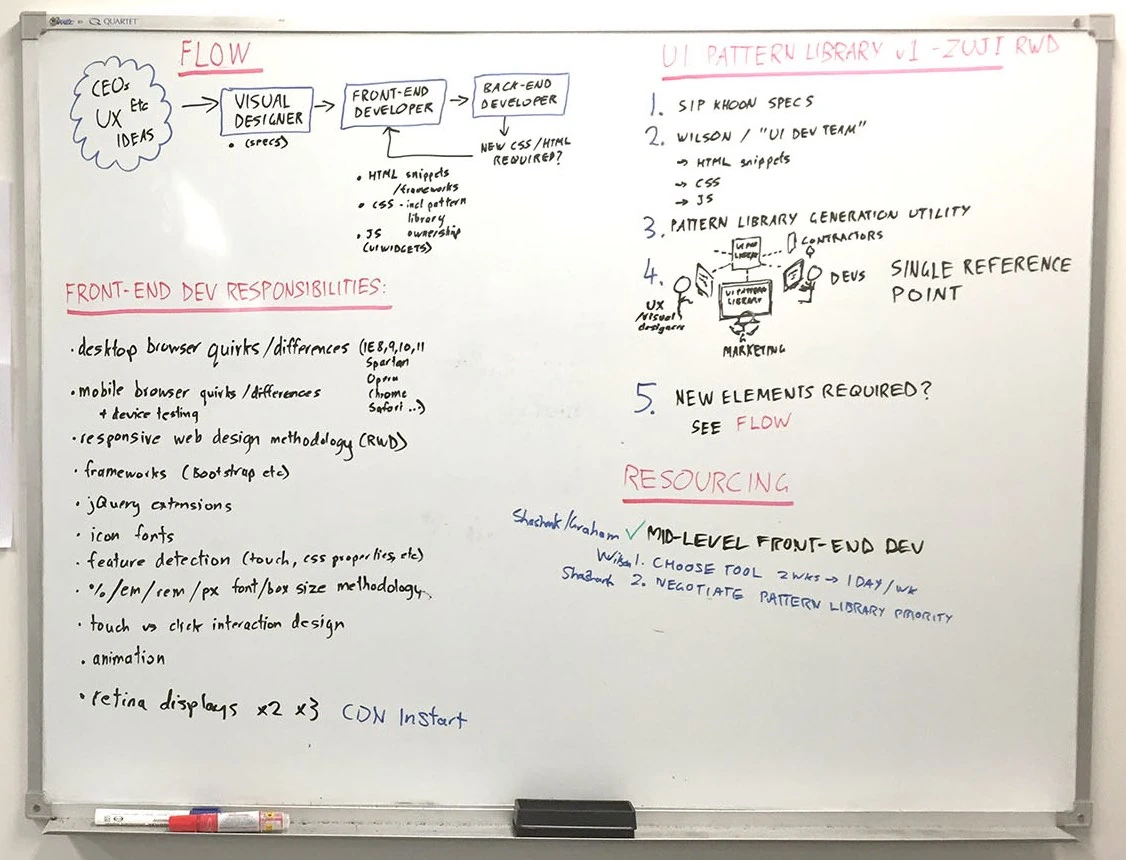 QUARTET
FLOW
CEOs
Etc
UX
IDEAS
VISUAL
DESIGNER
• (specs)
FRONT-END
DEVELOPER
BACK-END
DEVELOPER
NEW CSS/HTML
REQUIRED?
• HTML snippets
/frameworks
• CSS - incl pattern
library
• JS ownership
(UI WIDGETS)
FRONT-END DEV RESPONSIBILITIES:
• desktop browser quirks/differences (IE8,9,10,11
Spartan
Opera
Chrome
Safari ...)
• mobile browser quirks/differences
+ device testing
• responsive web design methodology (RWD)
• frameworks (Bootstrap etc)
• jQuery extensions
• icon fonts
• feature detection (touch, css properties, etc)
• %/em/rem/px font/box size methodology
• touch vs click interaction design
• animation
• retina displays x2 x3 CDN Instart
UI PATTERN LIBRARY v1 - ZUJI RWD
1. SIP KHOON SPECS
2. WILSON / "UI DEV TEAM"
→ HTML snippets
→ CSS
→ JS
3. PATTERN LIBRARY GENERATION UTILITY
CONTRACTORS
4.
UI PATTERN
LIBRARY
DEVS
UX
/visual
designers
MARKETING
SINGLE REFERENCE
POINT
5. NEW ELEMENTS REQUIRED?
SEE FLOW
RESOURCING
Shashank/Graham ✓ MID-LEVEL FRONT-END DEV
Wilson 1. CHOOSE TOOL 2 WKS → 1 DAY/WK
Shashank 2. NEGOTIATE PATTERN LIBRARY PRIORITY